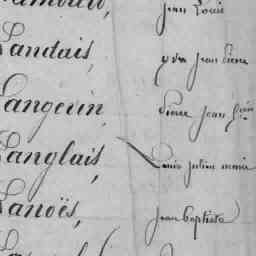 Jean Louis
Landais, yves Jean Pierre
Langevin, Pierre Jean
Langlais, Louis julien marie
Lanoës, Jean baptiste